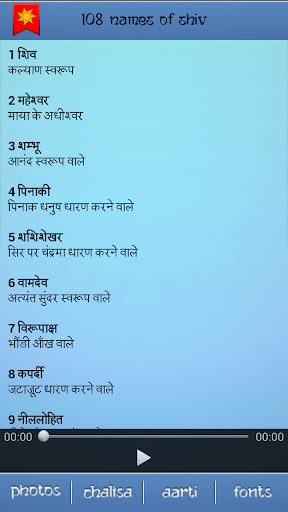 108 names of shiv
1 शिव
कल्याण स्वरूप
2 महेश्वर
माया के अधीश्वर
3 शम्भू
आनंद स्वरूप वाले
4 पिनाकी
पिनाक धनुष धारण करने वाले
5 शशिशेखर
सिर पर चंद्रमा धारण करने वाले
6 वामदेव
अत्यंत सुंदर स्वरूप वाले
7 विरूपाक्ष
भौंडी आँख वाले
8 कपर्दी
जटाजूट धारण करने वाले
9 नीललोहित
00:00 00:00
photos chalisa aarti fonts